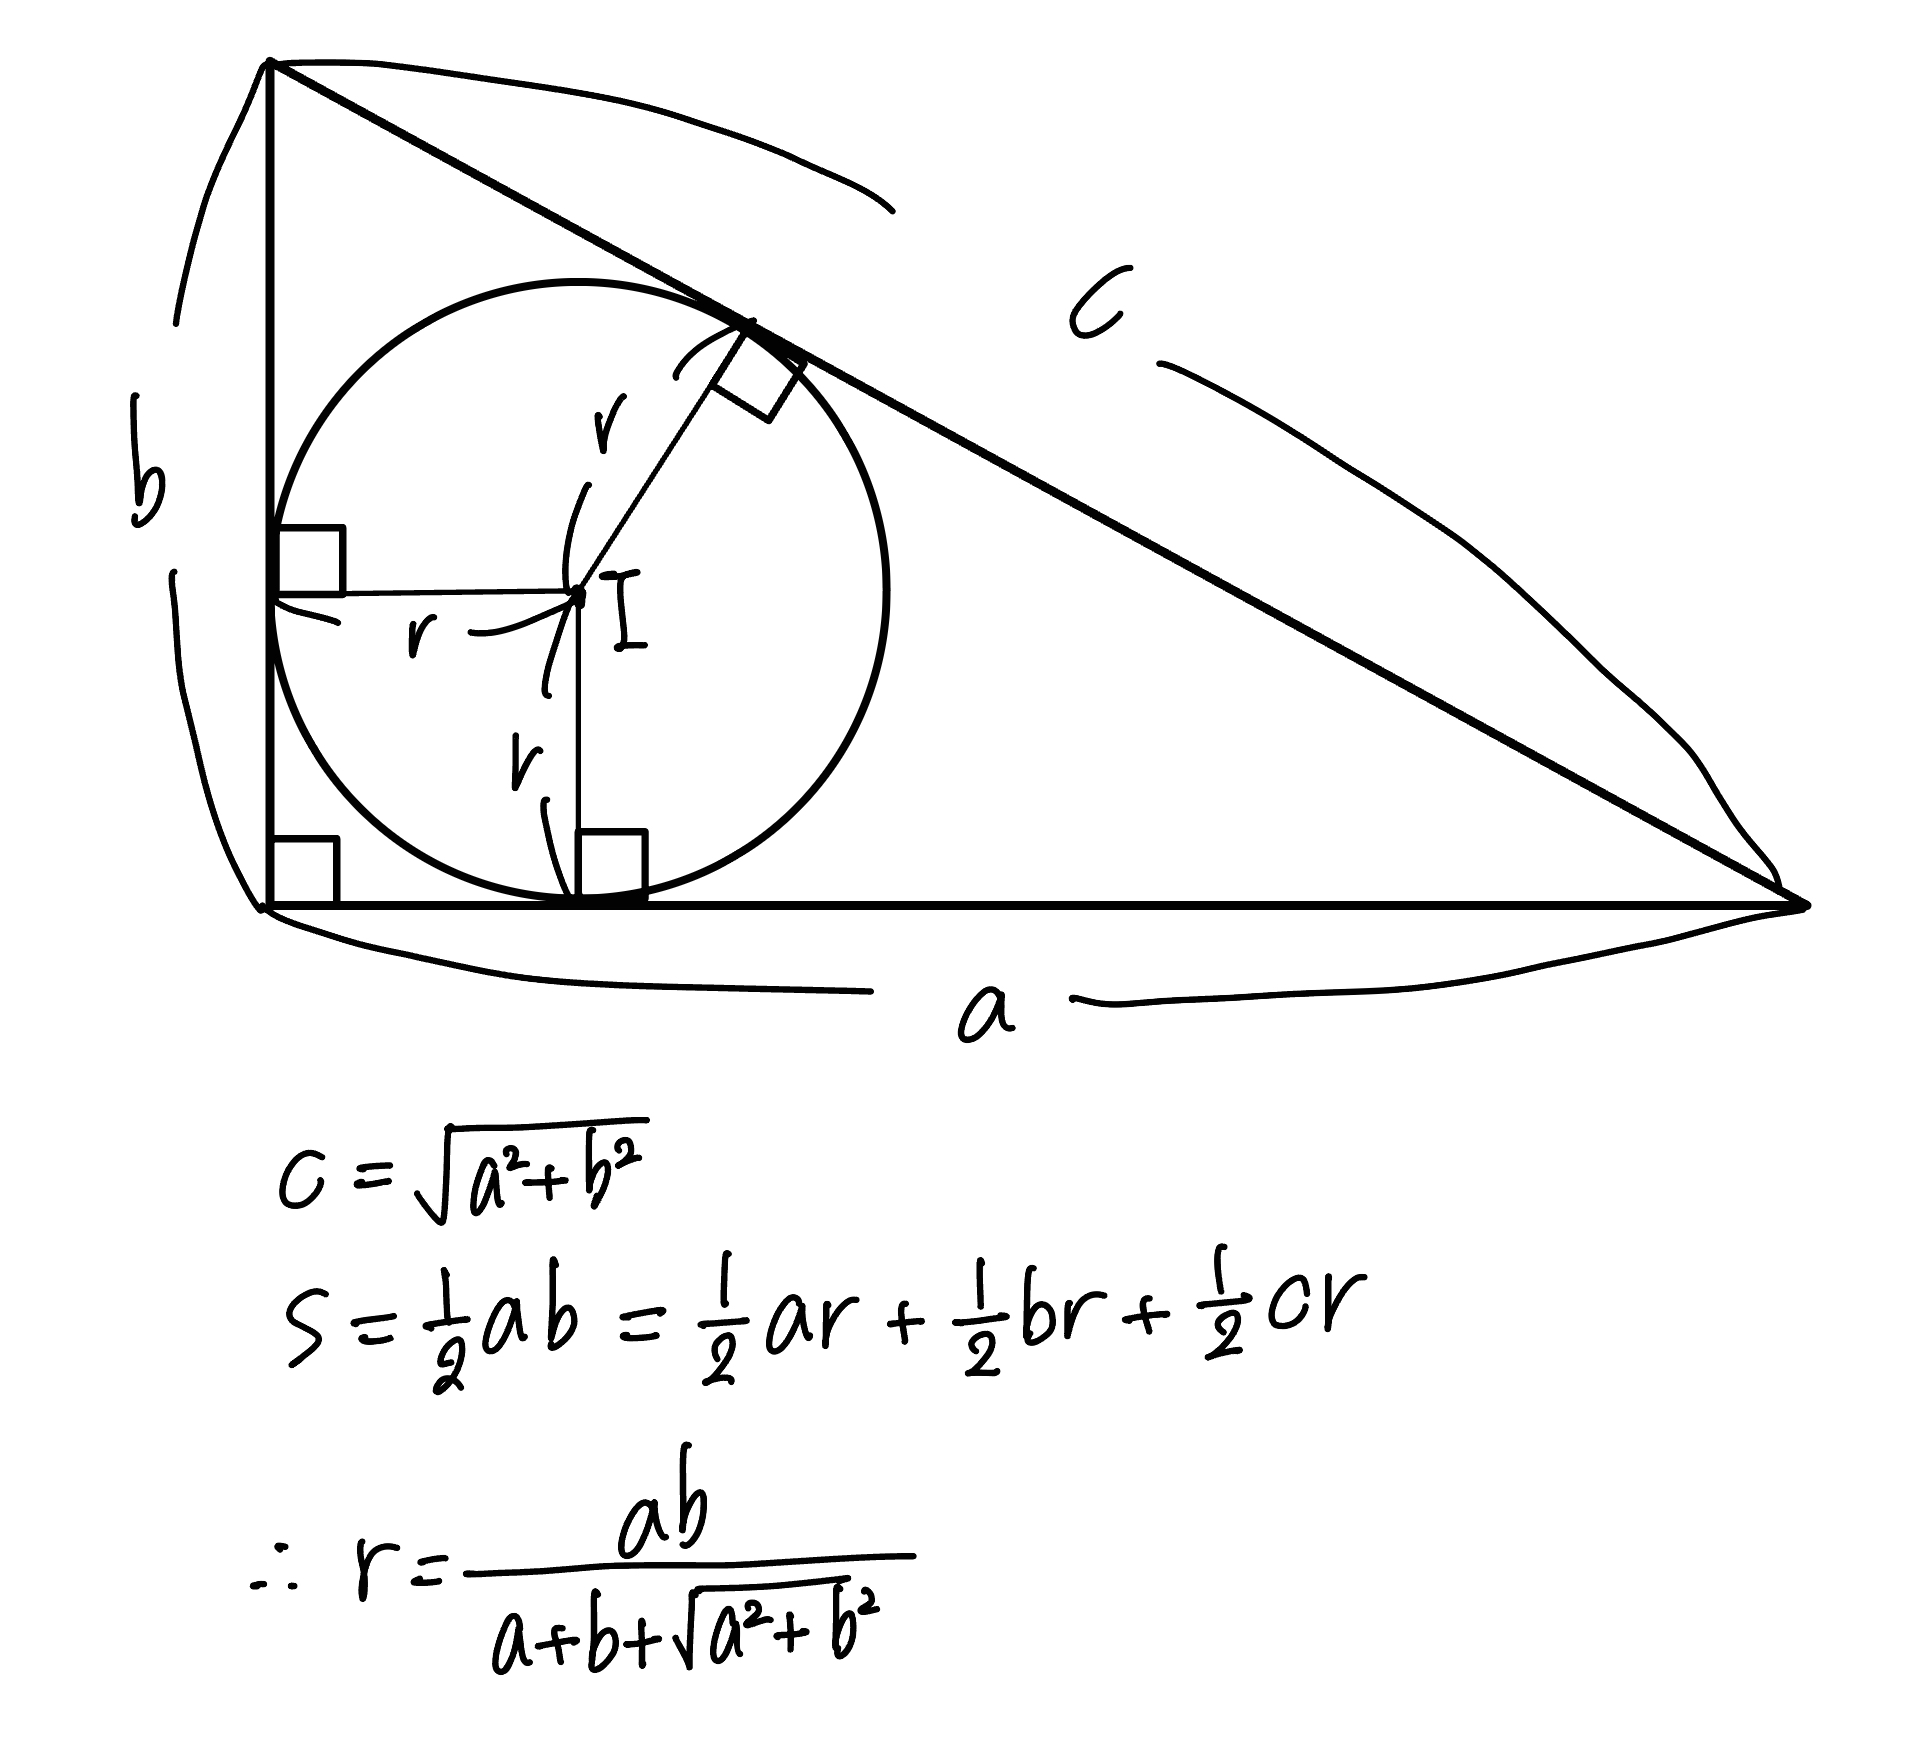 c
b
r
I
r
r
a
c = √(a²+b²)
S = 1/2 ab = 1/2 ar + 1/2 br + 1/2 cr
∴ r = ab/(a+b+√(a²+b²))